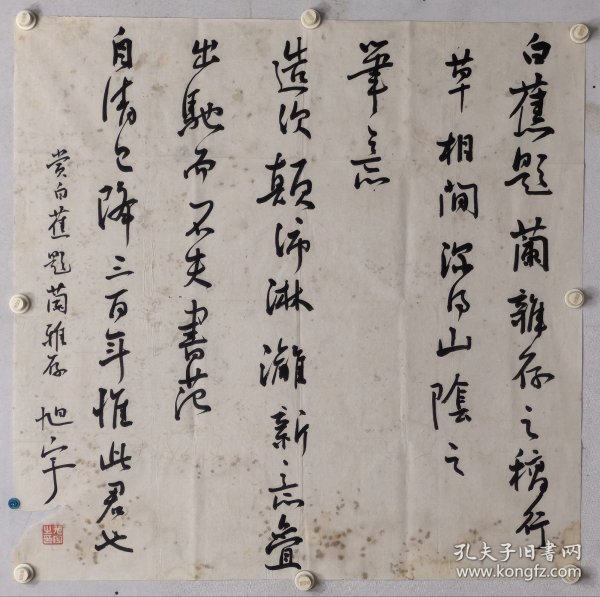 白蕉题蘭雜存之稿行
草相间深得山陰之
筆意
造次颠沛淋漓新意叠
出馳而不失書范
自清已降三百年惟此君也
赏白蕉题蘭雅存 旭宇
孔夫子旧书网
www.kongfz.com